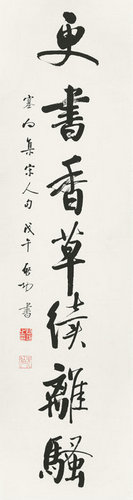 更書香草續離騷
集宋人句戊午啟功書